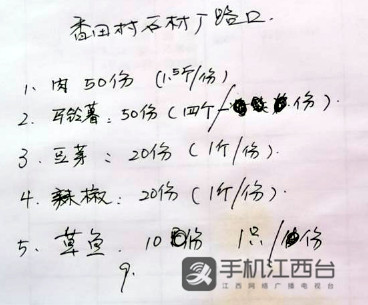 香田村石材厂路口.
1、肉 50份 (1.5斤/份)
2、马铃薯:50份(四个/份).
3、豆芽:20份(1斤/份).
4、辣椒:20份(1斤/份).
5、草鱼. 10份 1只/份
9.
手机江西台
江西网络广播电视台